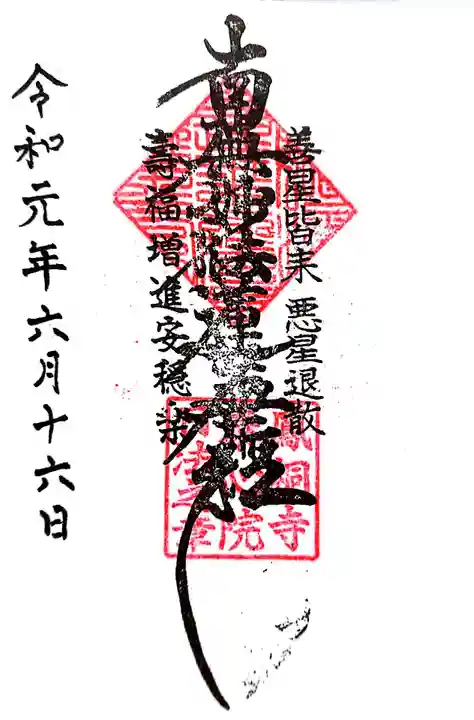 善星皆来 悪星退散
南無妙法蓮華経
壽福増進安穏楽
令和元年六月十六日